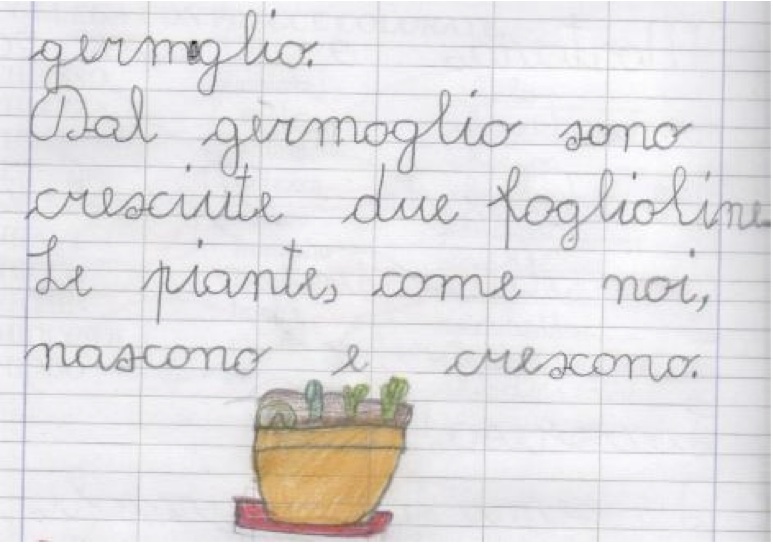 germoglio.
Dal germoglio sono
cresciute due foglioline
Le piante, come noi,
nascono e crescono.